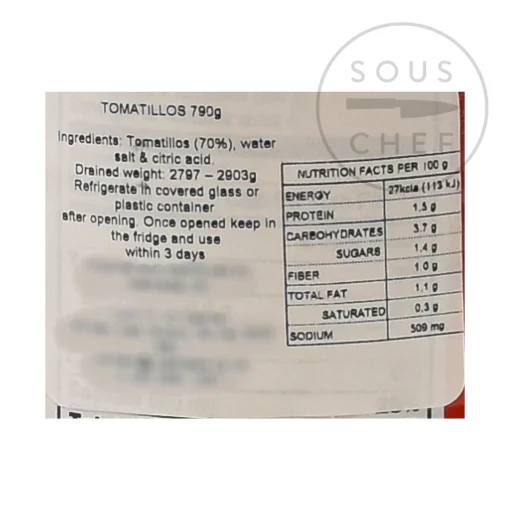 SOUS
CHEF
TOMATILLOS 790g
Ingredients: Tomatillos (70%), water
salt & citric acid.
Drained weight: 2797 – 2903g
Refrigerate in covered glass or
plastic container
after opening. Once opened keep in
the fridge and use
within 3 days
NUTRITION FACTS PER 100 g
ENERGY 27kcla (113 kJ)
PROTEIN 1,5 g
CARBOHYDRATES 3.7 g
SUGARS 1,4 g
FIBER 1 0 g
TOTAL FAT 1,1 g
SATURATED 0,3 g
SODIUM 509 mg